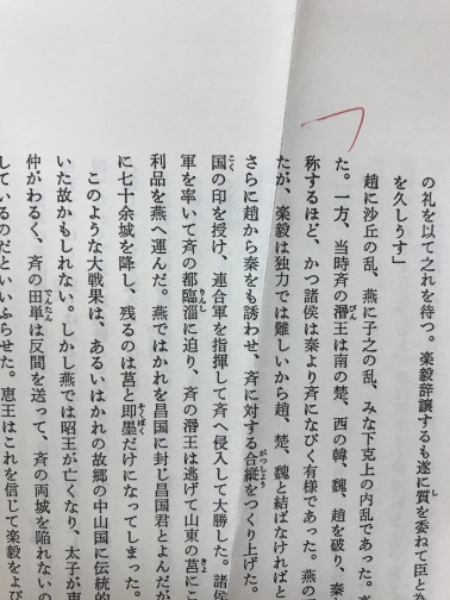 の礼を以て之れを待つ。楽毅辞譲するも遂に質を委ねて臣と為
を久しうす」
趙に沙丘の乱、燕に子之の乱、みな下克上の内乱であった。
た。一方、当時斉の湣王は南の楚、西の韓、魏、趙を破り、秦
称するほど、かつ諸侯は秦より斉になびく有様であった。燕の
たが、楽毅は独力では難しいから趙、楚、魏と結ばなければと
さらに趙から秦をも誘わせ、斉に対する合縦をつくり上げた。
国の印を授け、連合軍を指揮して斉へ侵入して大勝した。諸侯
軍を率いて斉の都臨淄に迫り、斉の湣王は逃げて山東の莒にこ
利品を燕へ運んだ。燕ではかれを昌国に封じ昌国君とよんだが
に七十余城を降し、残るのは莒と即墨だけになってしまった。
このような大戦果は、あるいはかれの故郷の中山国に伝統的
いた故かもしれない。しかし燕では昭王が亡くなり、太子が恵
仲がわるく、斉の田単は反間を送って、斉の両城を陥れないの
しているのだといいふらせた。恵王はこれを信じて楽毅をよび